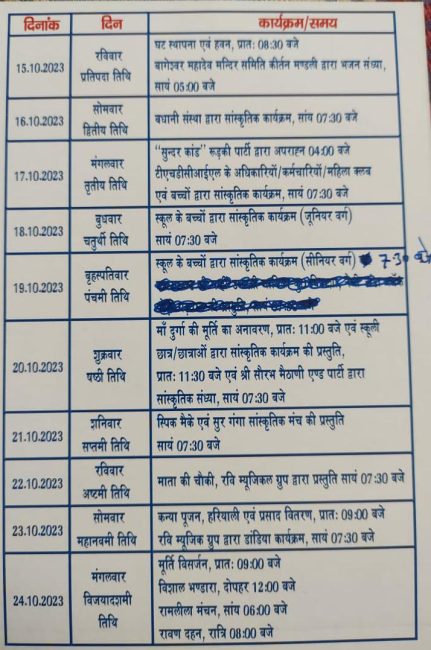 दिनांक दिन कार्यक्रम/समय
15.10.2023
रविवार
प्रतिपदा तिथि
घट स्थापना एवं हवन, प्रात: 08:30 बजे
बागेश्वर महादेव मन्दिर समिति कीर्तन मण्डली द्वारा भजन संध्या,
सायं 05:00 बजे
16.10.2023
सोमवार
द्वितीय तिथि
बधानी संस्था द्वारा सांस्कृतिक कार्यक्रम, सांय 07:30 बजे
17.10.2023
मंगलवार
तृतीय तिथि
"सुन्दर कांड" रूड़की पार्टी द्वारा अपराहन 04:00 बजे
टीएचडीसीआईएल के अधिकारियों/कर्मचारियों/महिला क्लब
एवं बच्चों द्वारा सांस्कृतिक कार्यक्रम, सायं 07:30 बजे
18.10.2023
बुधवार
चतुर्थी तिथि
स्कूल के बच्चों द्वारा सांस्कृतिक कार्यक्रम (जूनियर वर्ग)
सायं 07:30 बजे
19.10.2023
बृहस्पतिवार
पंचमी तिथि
स्कूल के बच्चों द्वारा सांस्कृतिक कार्यक्रम (सीनियर वर्ग) 7:30 बजे
20.10.2023
शुक्रवार
षष्ठी तिथि
माँ दुर्गा की मूर्ति का अनावरण, प्रात: 11:00 बजे एवं स्कूली
छात्र/छात्राओं द्वारा सांस्कृतिक कार्यक्रम की प्रस्तुति,
प्रात: 11:30 बजे एवं श्री सौरभ मैठाणी एण्ड पार्टी द्वारा
सांस्कृतिक संध्या, सायं 07:30 बजे
21.10.2023
शनिवार
सप्तमी तिथि
स्पिक मैके एवं सुर गंगा सांस्कृतिक मंच की प्रस्तुति
सायं 07:30 बजे
22.10.2023
रविवार
अष्टमी तिथि
माता की चौकी, रवि म्यूजिकल ग्रुप द्वारा प्रस्तुति सायं 07:30 बजे
23.10.2023
सोमवार
महानवमी तिथि
कन्या पूजन, हरियाली एवं प्रसाद वितरण, प्रात: 09:00 बजे
रवि म्यूजिक ग्रुप द्वारा डांडिया कार्यक्रम, सायं 07:30 बजे
24.10.2023
मंगलवार
विजयादशमी
तिथि
मूर्ति विसर्जन, प्रात: 09:00 बजे
विशाल भण्डारा, दोपहर 12:00 बजे
रामलीला मंचन, सांय 06:00 बजे
रावण दहन, रात्रि 08:00 बजे